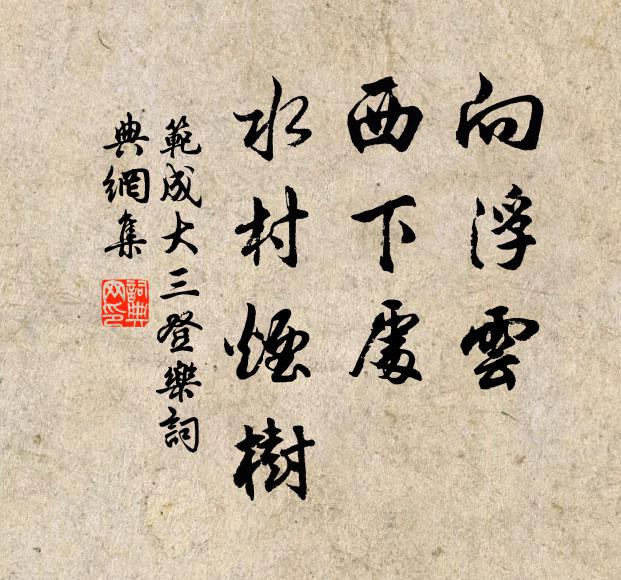 向浮雲
西下處
水村煙樹
範成大三登樂詞
典網集
詞典網印